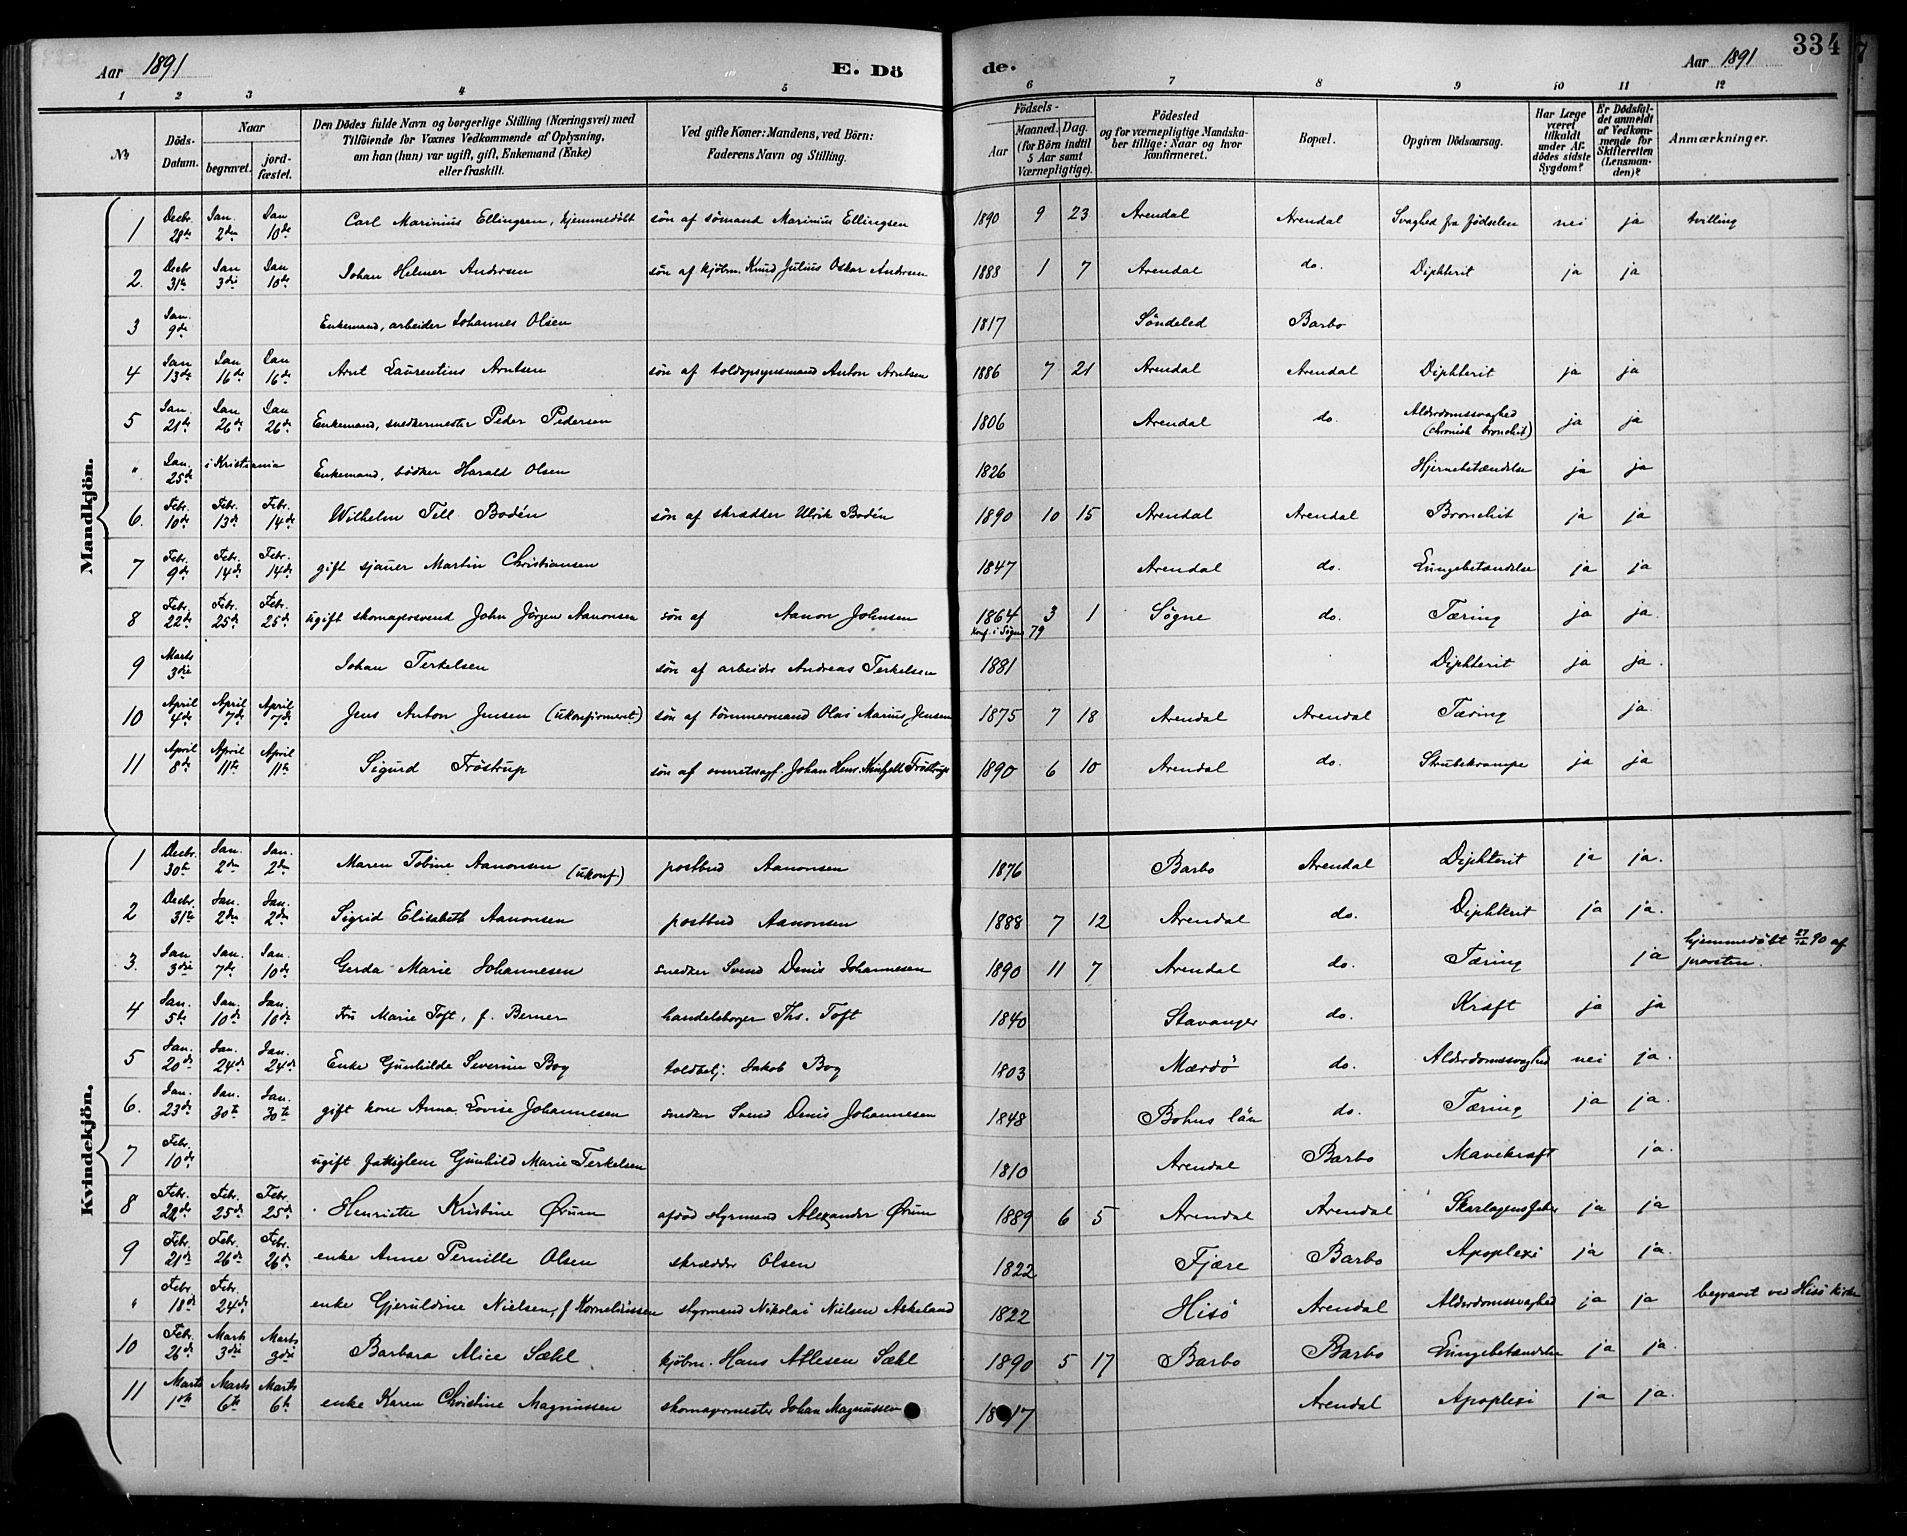 Aar 1891 E. Dö de. Aar 1891 334
1 2 3 4 5 6 7 8 9 10 11 12
No Döds-Datum. Naar begravet. jordfæstet. Den Dödes fulde Navn og borgerlige Stilling (Næringsvei) med Tilföiende for Voxnes Vedkommende af Oplysning, om han (hun) var ugift, gift, Enkemand (Enke) eller fraskilt. Ved gifte Koner: Mandens, ved Börn: Faderens Navn og Stilling. Födsels- Aar Maaned. Dag. (for Börn indtil 5 Aar samt Værnepligtige). Födested og for værnepligtige Mandskaber tillige: Naar og hvor konfirmeret. Bopæl. Opgiven Dödsaarsag. Har Læge været tilkaldt under Afdödes sidste Sygdom? Er Dödsfaldet anmeldt af Vedkommende for Skifteretten (Lensmanden)? Anmærkninger.
Mandkjön.
1 Decbr. 28de Jan. 2den Jan 10de Carl Marinius Ellingsen, hjemmedöbt sön af sömand Marinius Ellingsen 1890 9 23 Arendal Arendal Svaghed fra födselen nei ja tvilling
2. Decbr 31te Jan 3die Jan 10de Johan Helmer Andersen sön af kjöbm. Knud Julius Oskar Andersen 1888 1 7 Arendal do. Diphterit ja ja
3 Jan. 9de Enkemand, arbeider Johannes Olsen 1817 Söndeled Barbo
4 Jan 13de Jan 16de Jan 16de Arnt Laurentius Arntsen sön af toldopsynsmand Anton Arntsen 1886 7 21 Arendal Arendal Diphterit ja ja
5 Jan. 21de Jan 26de Jan 26de Enkemand, snedkermester Peder Pedersen 1806 Arendal do. Alderdomssvaghed (chronisk bronchit) ja ja
" Jan. 25de i Kristiania Enkemand, bödker Harald Olsen 1826 Hjernebetændelse ja ja
6. Febr. 10de Febr. 13de Febr 14de Wilhelm Tell Bodén sön af skrædder Ulrik Bodén 1890 10 15 Arendal Arendal Bronchit ja ja
7 Febr. 9de Febr. 14de Febr. 14de gift sjauer Martin Christiansen 1847 Arendal do. Lungebetændelse ja ja
8 Febr. 22de Febr. 25de Febr. 25de ugift skomagersvend John Jörgen Aanonsen sön af Aanon Johnsen 1864 3 1 Søgne do. Tæring ja ja.
Konf. i Søgne 79
9 Marts 3die Johan Terkelsen sön af arbeider Andreas Terkelsen 1881 Diphterit ja ja.
10 April 4de April 7de April 7de Jens Anton Jensen (ukonfirmeret) sön af tömmermand Olai Marius Jensen 1875 7 18 Arendal Arendal Tæring ja.
11 April 8de April 11te April 11te Sigurd Fröstrup sön af overretssagf. Johan Henr. Fröstrup 1890 6 10 Arendal do. Strubekrampe ja ja
Kvindekjön.
1 Decbr. 30te Jan. 2den Jan. 2den Maren Tobine Aanonsen (ukonf.) postbud Aanonsen 1876 Barbo Arendal Diphterit ja ja.
2 Decbr. 31te Jan. 2den Jan. 2den Sigrid Elisabeth Aanonsen postbud Aanonsen 1888 7 12 Arendal do. Diphterit ja ja.
3. Jan 3die Jan. 7de Jan. 10de Gerda Marie Johannesen snedker Svend Denis Johannesen 1890 11 7 Arendal do. Tæring ja hjemmedöbt 27/12 90 af provsten.
4 Jan. 5te Jan. 10de Jan. 10de Fru Marie Toft, f. Berner handelsborger Ths. Toft 1840 Stavanger do. Kræft ja ja
5 Jan. 20de Jan. 24de Jan. 24de Enke Gunhilde Severine Bog toldbetj. Jakob Bog 1803 Mærdö do. Alderdomssvaghed nei ja.
6. Jan. 23de Jan. 30te Jan. 30te gift kone Anna Lovise Johannesen snedker Svend Denis Johannesen 1848 Bohus län do. Tæring ja ja.
7 Febr. 10de ugift fattiglem Gunhild Marie Terkelsen 1810 Arendal Barbo Mavekræft ja.
8 Febr. 22de Febr. 25de Febr. 25de Henriette Kristine Ørum afdød styrmand Alexander Ørum 1889 6 5 Arendal Arendal Skarlagensfeber ja ja
9 Febr. 21de Febr. 26de Febr. 26de enke Anne Pernille Olsen skrædder Olsen 1822 Fjære Barbo Apoplexi ja ja.
" Febr. 18de Febr. 24de enke Gjeruldine Nielsen, f Korneliussen styrmand Nikolai Nielsen Askeland 1822 Hisö Arendal Alderdomssvaghed ja ja begravet ved Hisö kirke
10 Febr. 26de Marts 3die Marts 3die Barbara Alice Sæhl kjöbm. Hans Atlesen Sæhl 1890 5 17 Barbo Barbo Lungebetændelse ja ja.
11 Marts 1ste Marts 6te Marts 6te enke Karen Christine Magnussen skomagermester Johan Magnussen 1817 Arendal Apoplexi ja ja.